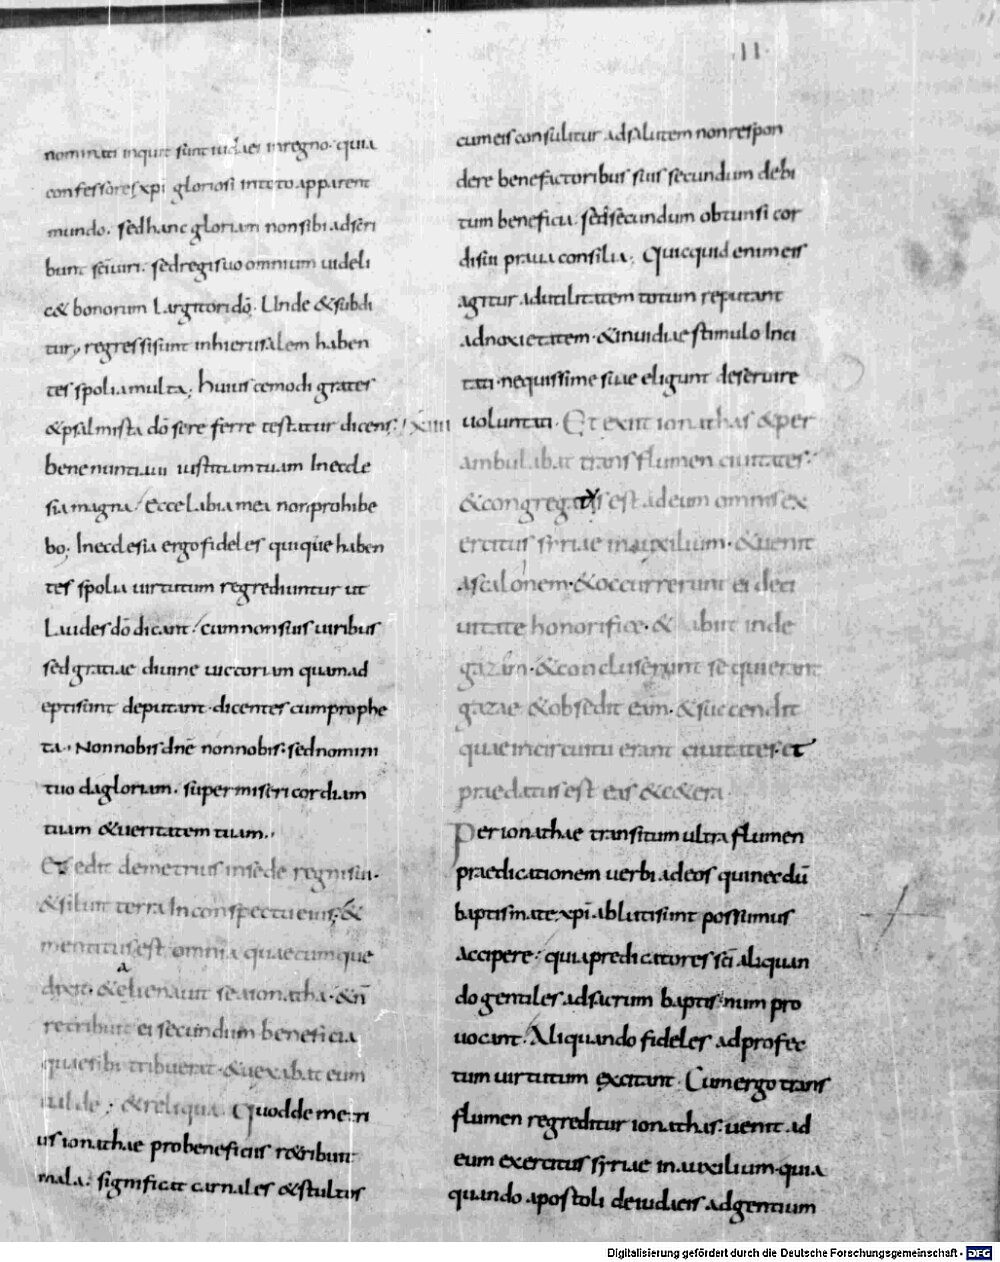 ·11·
nominati inquit sunt iudaei inregno· quia
confessores xpi gloriosi in toto apparent
mundo· sed hanc gloriam non sibi adscri
bunt sci uiri· sed regi suo omnium uideli
c& bonorum largitori dō· Unde & subdi
tur, regressi sunt inhierusalem haben
tes spolia multa; Huiuscemodi grates
& psalmista dō sere ferre testatur dicens;
bene nuntiaui iustitiam tuam In eccle
sia magna· ecce labia mea non prohibe
bo; In ecclesia ergo fideles quique haben
tes spolia uirtutum regrediuntur ut
Laudes dō dicant· cum non suis uiribus
sed gratiae diuine uiccoriam quam ad
epti sunt deputant· dicentes cum prophe
ta· Non nobis dne non nobis· sed nomini
tuo da gloriam· super misericordiam
tuam & ueritatem tuam·
Et sedit demetrius in sede regni sui·
& siluit terra In conspectu eius; &
mentitus est omnia quaecumque
dixit· & alienauit se a ionatha· & n̄
retribuit ei secundum beneficia
quae sibi tribuerat· & uexabat eum
ualde; & reliqua· Quod deme tri
us ionathae pro beneficiis r&ribuit
mala· significat carnales & stultus
cum eis consulitur ad salutem non respon
dere benefactoribus suis secundum debi
tum beneficii· sed secundum obtunsi cor
dis sui praua consilia; Quicquid enim eis
agitur ad utilitatem totum reputant
ad noxietatem· & inuidiae stimulo Inci
tati· nequissime suae eligunt deseruire
uoluntati· Et exiit ionathas & per
ambulabat trans flumen ciuitates·
& congregatus est ad eum omnis ex
ercitus syriae in auxilium· & uenit
ascalonem· & occurrerunt ei de ci
uitate honorifice· & abiit inde
gazam· & concluserunt se qui erant
gazae & obsedit eam· & succendit
quae in circuitu erant ciuitates· et
praedatus est eas & c&era
Per ionathae transitum ultra flumen
praedicationem uerbi ad eos qui necdū
baptismate xpi abluti sunt possumus
accipere· quia predicatores sci aliquan
do gentiles ad sacrum baptismum pro
uocant· Aliquando fideles ad profec
tum uirtutum excitant· Cum ergo trans
flumen regreditur ionathas· uenit ad
eum exercitus syriae in auxilium· quia
quando apostoli de iudaeis ad gentium
Digitalisierung gefördert durch die Deutsche Forschungsgemeinschaft - DFG